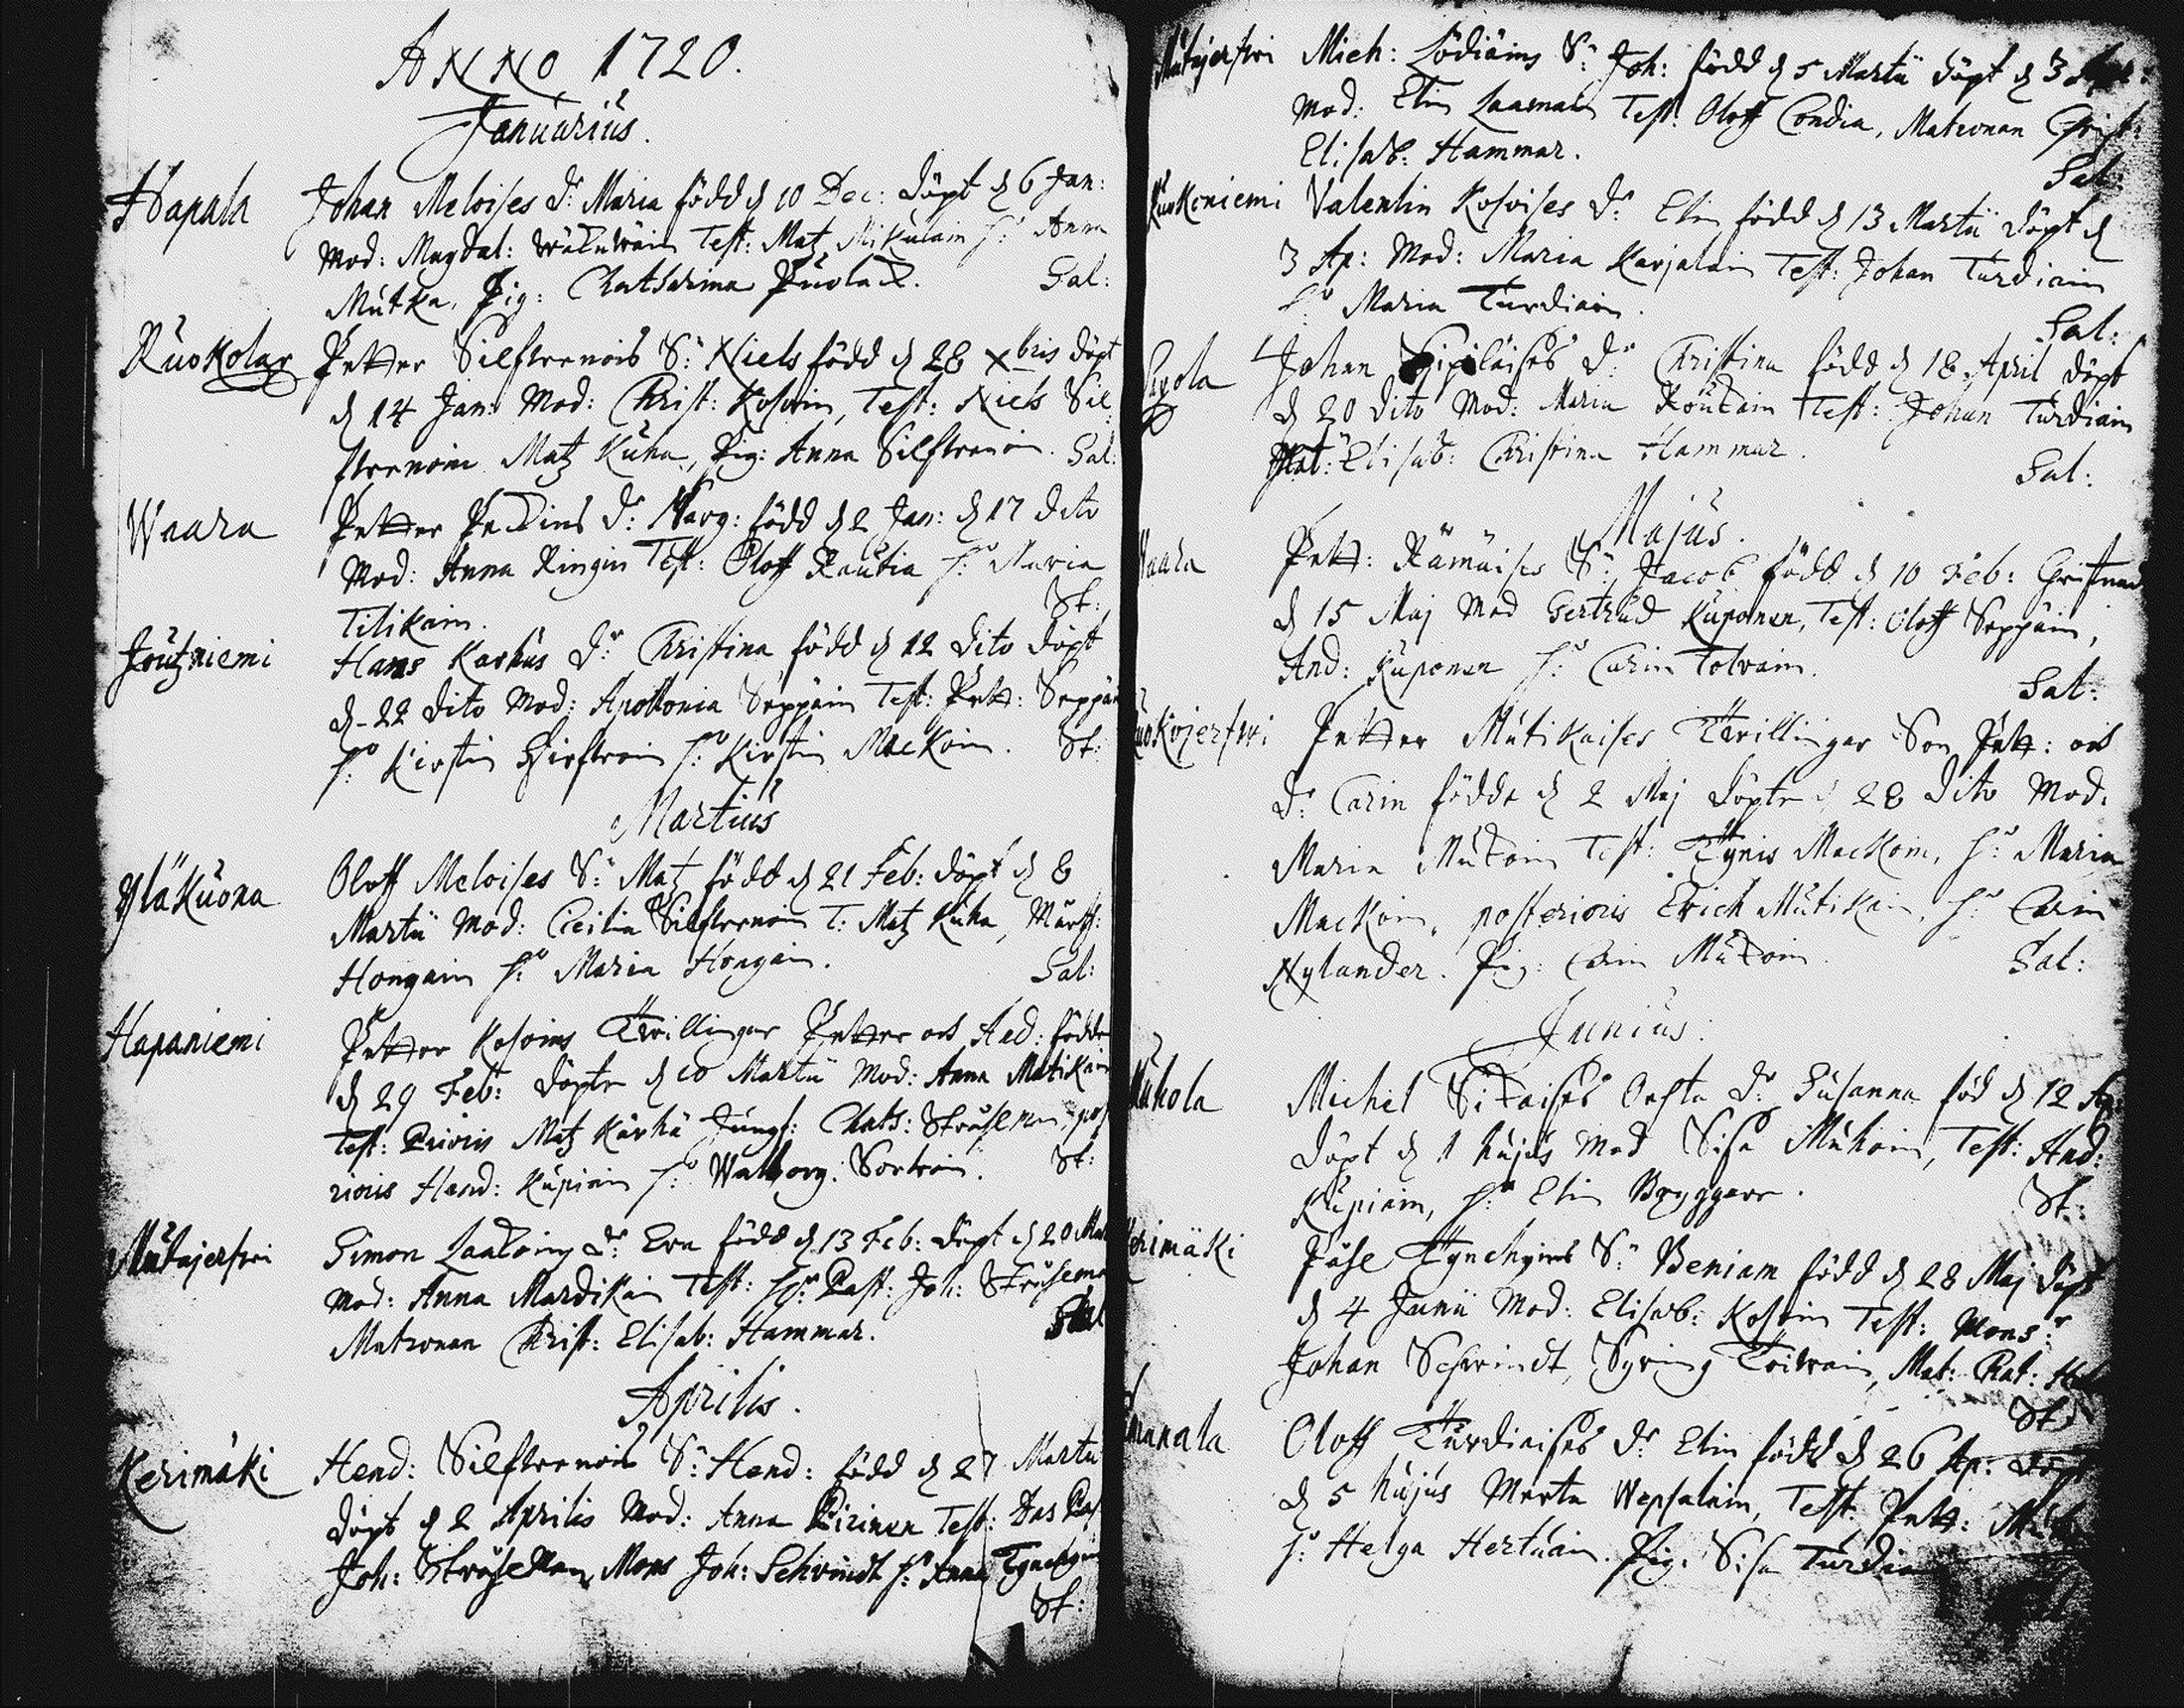 ANNO 1720.
Januarius.
Hapala Johan Meloises Dr Maria född d 10 Dec: döpt d 6 Jan:
Mod: Magdal: Test: Matz Mikulain H: Anna
Mutka, Pig: Chatharina Puolack. Sal:
Ruokolax Petter Silfvenois S: Niels född d 28 Xbris döpt
d 14 Jan: Mod: Christ: Kosoin, Test: Niels Sil
Matz Kuha, Pig: Anna Silfvenoin. Sal:
Waara Petter Peckins Dr: Marg: född d 2 Jan: d 17 dito
Mod: Anna Ringin Test: Oloff Rautia H: Maria
Tilikain. St:
Joutzniemi Hans Karhus Dr Christina född d 12 dito döpt
d 22 dito Mod: Apollonia Seppäin Test: Pett: Seppäi
H: Kirstin H: Kirstin Mackoin. St:
Martius
Yläkuona Oloff Meloises S: Matz född d 21 Feb: döpt d 8
Martii Mod: Cicilia Silfvenoin T: Matz Kuha, Märt:
Hongain H: Maria Hongain. Sal:
Hapaniemi Petter Kosoins Twillingar Petter och And: födde
d 29 Feb: döpte d 10 Martii Mod: Anna Matikain
Test: Prioris Matz Karhu Jungf: Chats: poste
rioris Hend: Kupiain H: Walborg. St:
Mutajerfwi Simon Dr: Eva född d 13 Feb: döpt d 20 Mar
Mod: Anna Mardikain Test: Hr: Past: Joh:
Matronan Christ: Elisab: Hammar. Sal
Aprilis.
Kerimäki Hend: Silfvenois S: Hend: född d 27 Martii
döpt d 2 Aprilis Mod: Anna Pirinen Test: Das Past
Joh: Mons Joh: Schvindt H: Anna Tynchyin
St:
Mutajerfwi Mich: Lödiäins S: Joh: född d 5 Martii döpt d 3
Mod: Elin Laaman Test: Oloff Condia, Matronan Christ:
Elisab: Hammar. Sal:
Ruokoniemi Valentin Kosoises Dr Elin född d 13 Martii döpt d
3 Ap: Mod: Maria Karjalain Test: Johan Turdiain
H: Maria Turdiain. Sal:
Johan Pipiläises Dr Christina född d 18 April döpt
d 20 dito Mod: Maria Test: Johan Turdiain
Mat: Elisab: Christina Hammar. Sal:
Majus.
Waara Pett: Rämäises S: Jacob född d 10 Feb: Christnad
d 15 Maj Mod Gertrud Kuponen, Test: Oloff Seppäin,
And: Kuponen H: Carin Tolvain. Sal:
Ruokojerfwi Petter Mutikaises Twillingar Son Pett: och
Dr: Carin födde d 2 Maj döpte d 28 dito Mod:
Maria Test: Tynis Mackoin, H: Maria
Mackoin, posterioris Erich Mutikain, H: Carin
Nylander. Pig: Carin Sal:
Junius.
Muhola Michel Oechta Dr Susanna föd d 12 Ap
döpt d 1 hujus Mod Sisa Muhoin, Test: And:
Kupiain, H: Elin Bryggare. St:
Kerimäki Påhl Tynchyins S: Beniam född d 28 Maj döpt
d 4 Junii Mod: Elisab: Kosoin Test: Mons:r
Johan Schvindt, Toivain, Mat:
St:
Oloff Turdiaises Dr Elin född d 26 Ap: döpt
d 5 hujus Merta Wepsalain, Test: Pett:
H: Helga Hertuain. Pig: Sisa Turdia